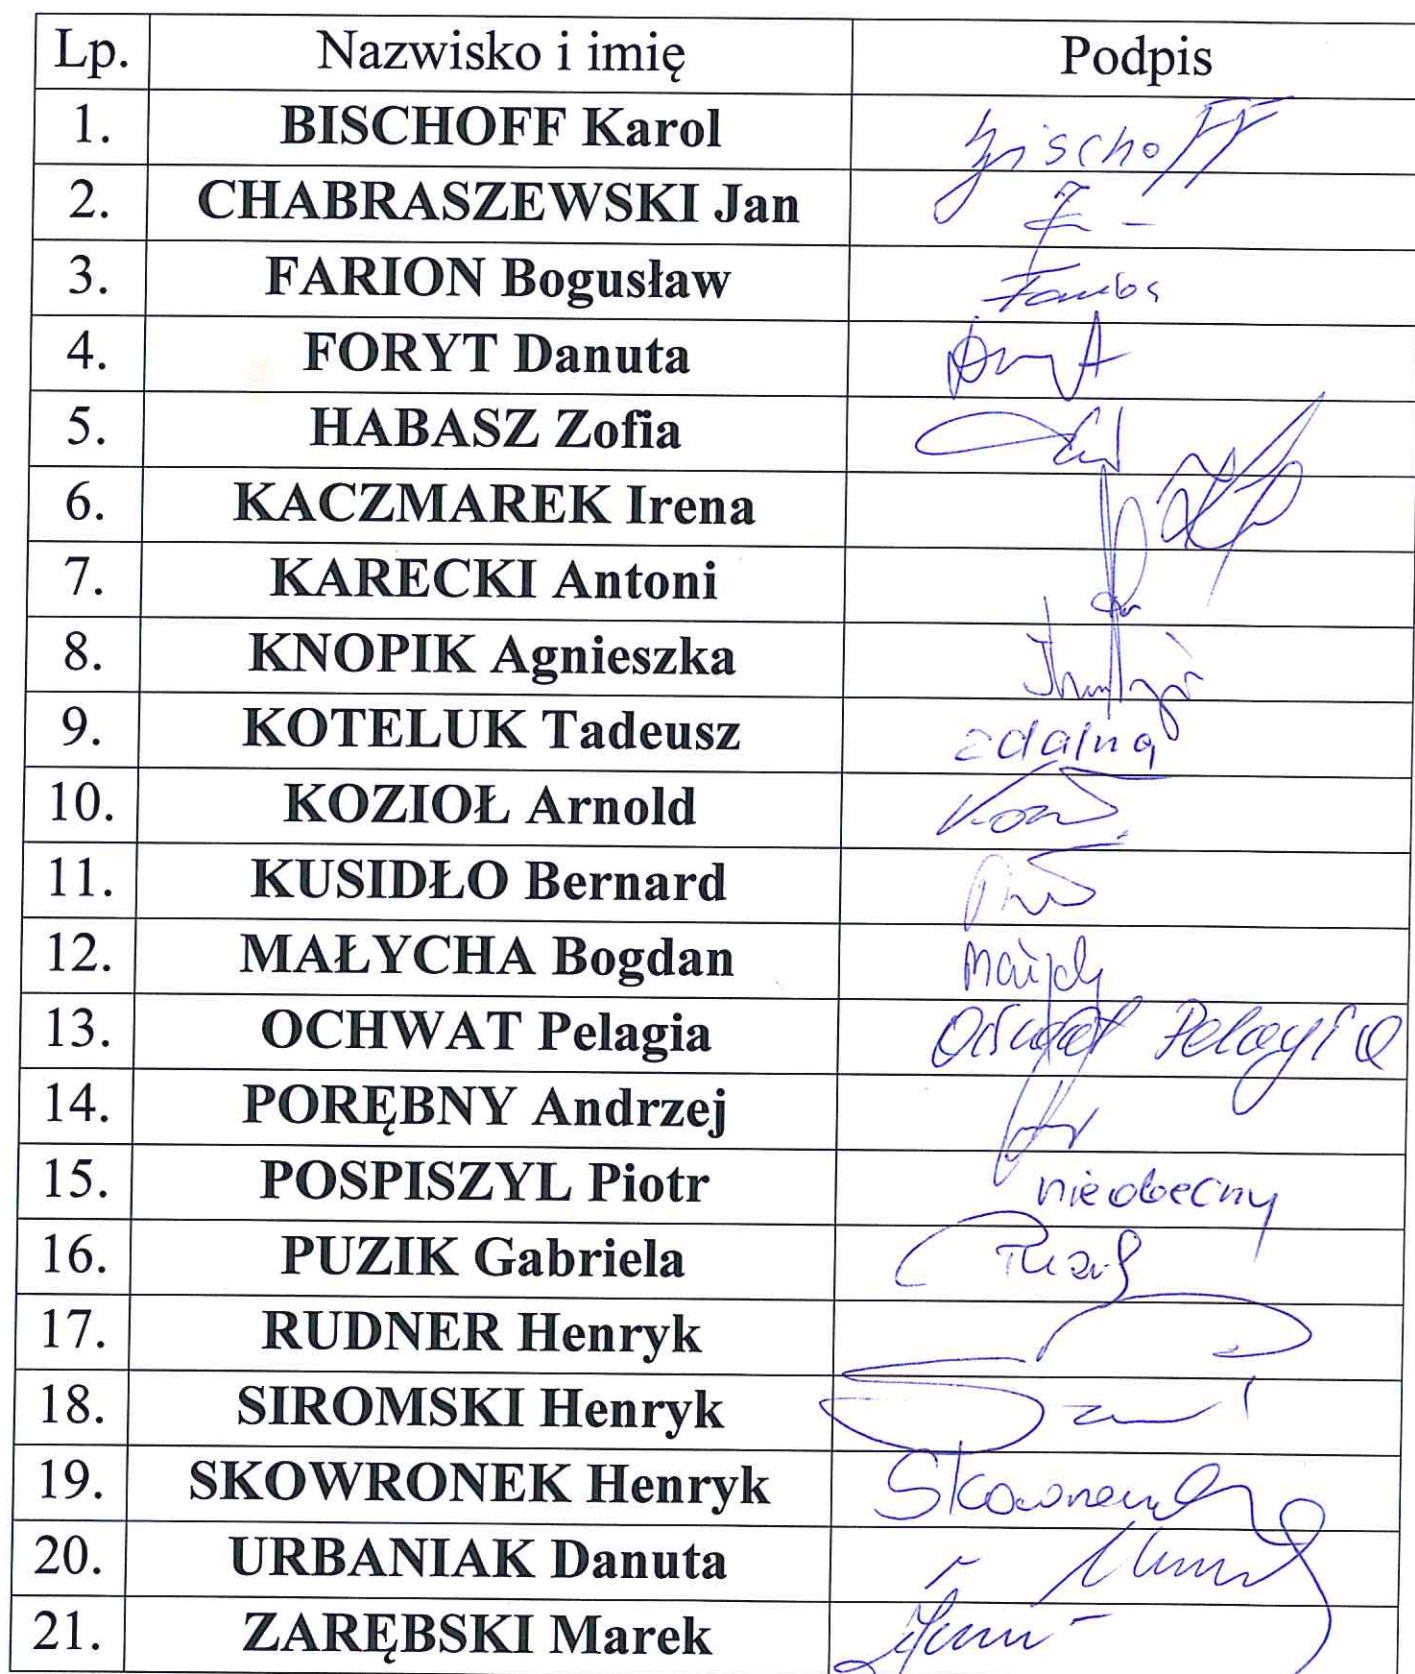 Lp. Nazwisko i imię Podpis
1. BISCHOFF Karol Bischoff
2. CHABRASZEWSKI Jan
3. FARION Bogusław
4. FORYT Danuta
5. HABASZ Zofia
6. KACZMAREK Irena
7. KARECKI Antoni
8. KNOPIK Agnieszka
9. KOTELUK Tadeusz zdalną
10. KOZIOŁ Arnold
11. KUSIDŁO Bernard
12. MAŁYCHA Bogdan
13. OCHWAT Pelagia Ochwat Pelagia
14. PORĘBNY Andrzej
15. POSPISZYL Piotr nieobecny
16. PUZIK Gabriela Puzik
17. RUDNER Henryk
18. SIROMSKI Henryk
19. SKOWRONEK Henryk Skowronek
20. URBANIAK Danuta
21. ZARĘBSKI Marek